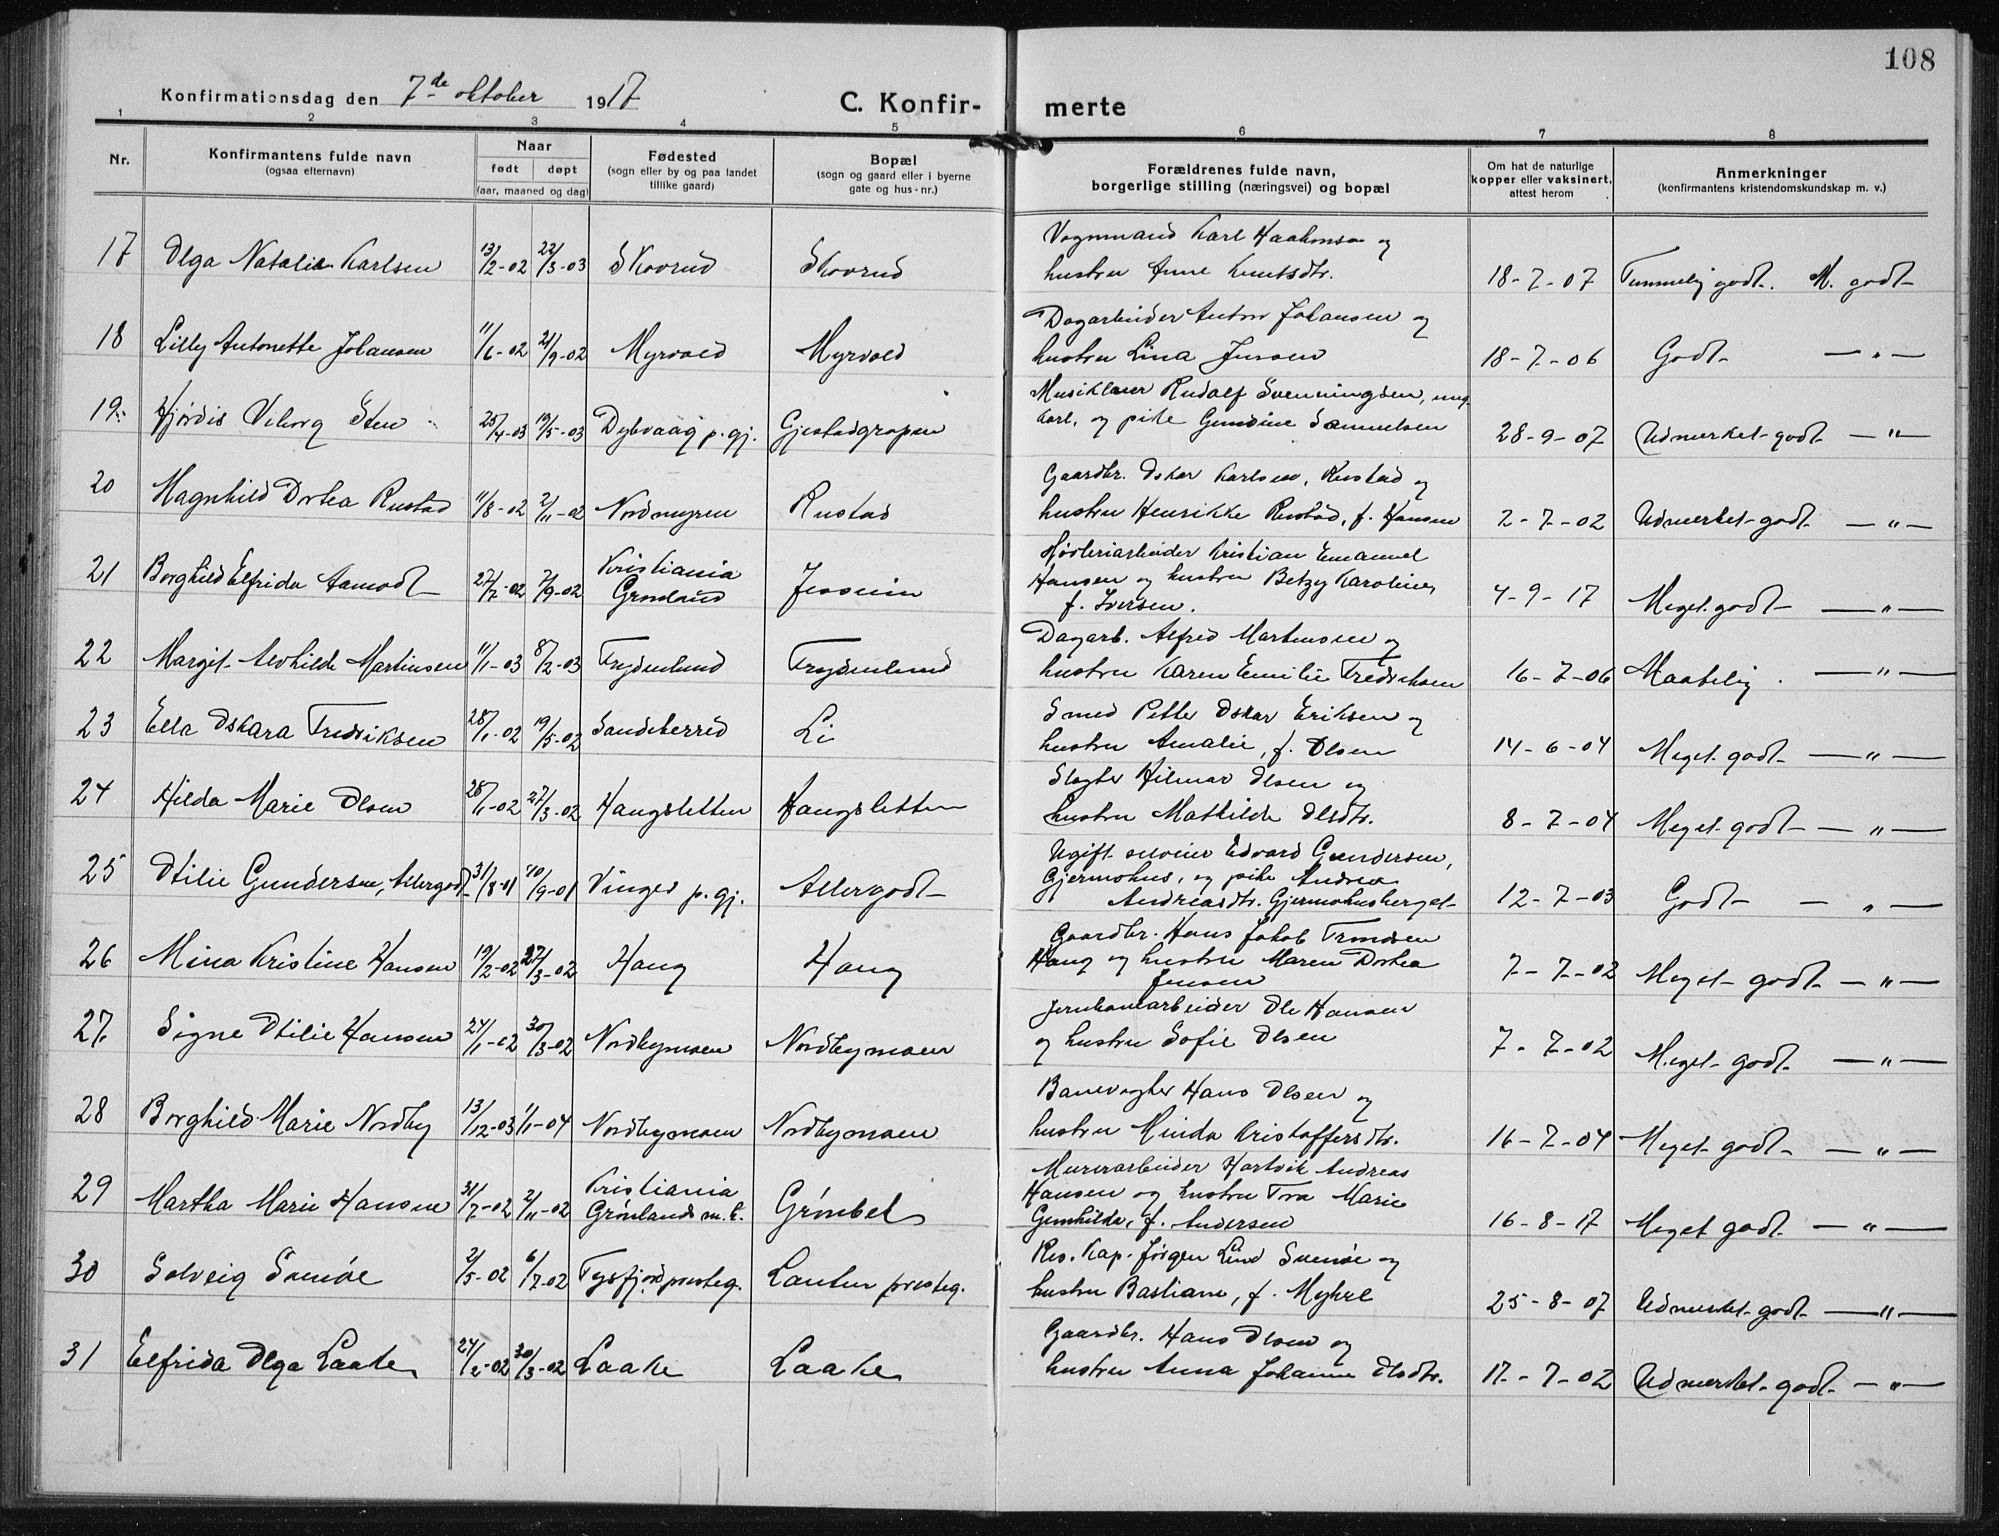 108
Konfirmationsdag den 7de oktober 1917
C. Konfir- merte
1 2 3 4 5 6 7 8
Nr.
Konfirmantens fulde navn
(ogsaa efternavn)
Naar
født døpt
(aar, maaned og dag)
Fødested
(sogn eller by og paa landet
tillike gaard)
Bopæl
(sogn og gaard eller i byerne
gate og hus-nr.)
Forældrenes fulde navn,
borgerlige stilling (næringsvei) og bopæl
Om hat de naturlige
kopper eller vaksinert,
attest herom
Anmerkninger
(konfirmantens kristendomskundskap m. v.)
Vognmand Karl Haakonsen og
17 Olga Natalie Karlsen 13/2-02 22/3-03 Skovrud Skovrud hustru Anne Knutsdtr. 18-7-07 Temmelig godt. M. godt
Dagarbeider Anton Johansen og
18 Lilly Antonette Johansen 11/6-02 21/9-02 Myrvold Myrvold hustru Lina Jensen 18-7-06 Godt — " —
Musiklærer Rudolf Svenningsen, ung-
19. Hjørdis Viborg Sten 25/4-03 19/5-03 Dybvaag p.gj. Gjestadgropen karl, og pike Gundine Samuelsen 28-9-07 Udmerket godt — " —
Gaardbr. Oskar Karlsen, Rustad og
20 Magnhild Dortea Rustad 11/8-02 2/11-02 Nordmyren Rustad hustru Henrikke Rustad, f. Hansen 2-7-02 Udmerket godt — " —
Høvleriarbeider Kristian Emanuel
21 Borghild Elfrida Aamodt 27/7-02 7/9-02 Kristiania Grønland Jessheim Hansen og hustru Betzy Karoline,
f. Iversen. 4-9-17 Meget godt — " —
Dagarb. Alfred Martinsen og
22 Margit Alvhilde Martinsen 11/1-03 8/2-03 Frydenlund Frydenlund hustru Karen Emilie Fredriksen 16-7-06 Maatelig. — " —
Smed Petter Oskar Eriksen og
23 Ella Oskara Fredriksen 28/1-02 19/5-02 Sandeherred Li hustru Amalie, f. Olsen 14-6-04 Meget godt — " —
Slagter Hilmar Olsen og
24 Hilda Marie Olsen 28/1-02 27/3-02 Haugsletten Haugsletten hustru Mathilde Olsdtr. 8-7-04 Meget godt — " —
Ugift Edvard Gundersen,
25 Otilie Gundersen, Allergodt 31/8-01 /9-01 Vinger p.gj. Allergodt Gjermohus, og pike Andrea
Andreasdtr. Gjermohusberget 12-7-03 Godt — " —
Gaardbr. Hans Jakob Trondsen
26 Mina Kristine Hansen 19/2-02 27/3-02 Haug Haug Haug og hustru Maren Dortea
Jensen 7-7-02 Meget godt — " —
Jernbanearbeider Ole Hansen
27. Signe Otilie Hansen 24/1-02 30/3-02 Nordbymoen Nordbymoen og hustru Sofie Olsen 7-7-02 Meget godt — " —
Banevogter Hans Olsen og
28 Borghild Marie Nordby 13/12-03 1/1-04 Nordbymoen Nordbymoen hustru Minda Kristoffersdtr. 16-7-04 Meget godt — " —
Murerarbeider Hartvik Andreas
29 Martha Marie Hansen 31/7-02 2/11-02 Kristiania Grønlands m.h. Grønbek Hansen og hustru Tora Marie
Gunhilde, f. Andersen 16-8-17 Meget godt — " —
Res. Kap. Jørgen Lind Svenøe og
30 Solveig Svenøe 2/5-02 6/7-02 Tysfjord presteg. Kanten presteg. hustru Bastiane, f. Myhre 25-8-07 Udmerket godt — " —
Gaardbr. Hans Olsen og
31 Elfrida Olga Laake 24/2-02 30/3-02 Laake Laake hustru Anna Johanne Olsdtr. 17-7-02 Udmerket godt — " —